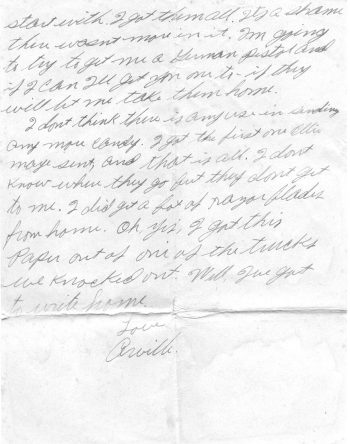 start with. I got them all. It's a shame
there wasnt more in it. I'm going
to try to get me a German pistol and
if I can I'll get you one to - if they
will let me take them home.
I dont think there is any use in sending
any more candy. I got the first one Ellis
maye sent, and that is all. I dont
know where they go but they dont get
to me. I did get a lot of razor blades
from home. Oh yes, I got this
Paper out of one of the trucks
we knocked out. Well I've got
to write home
Love
Orville.